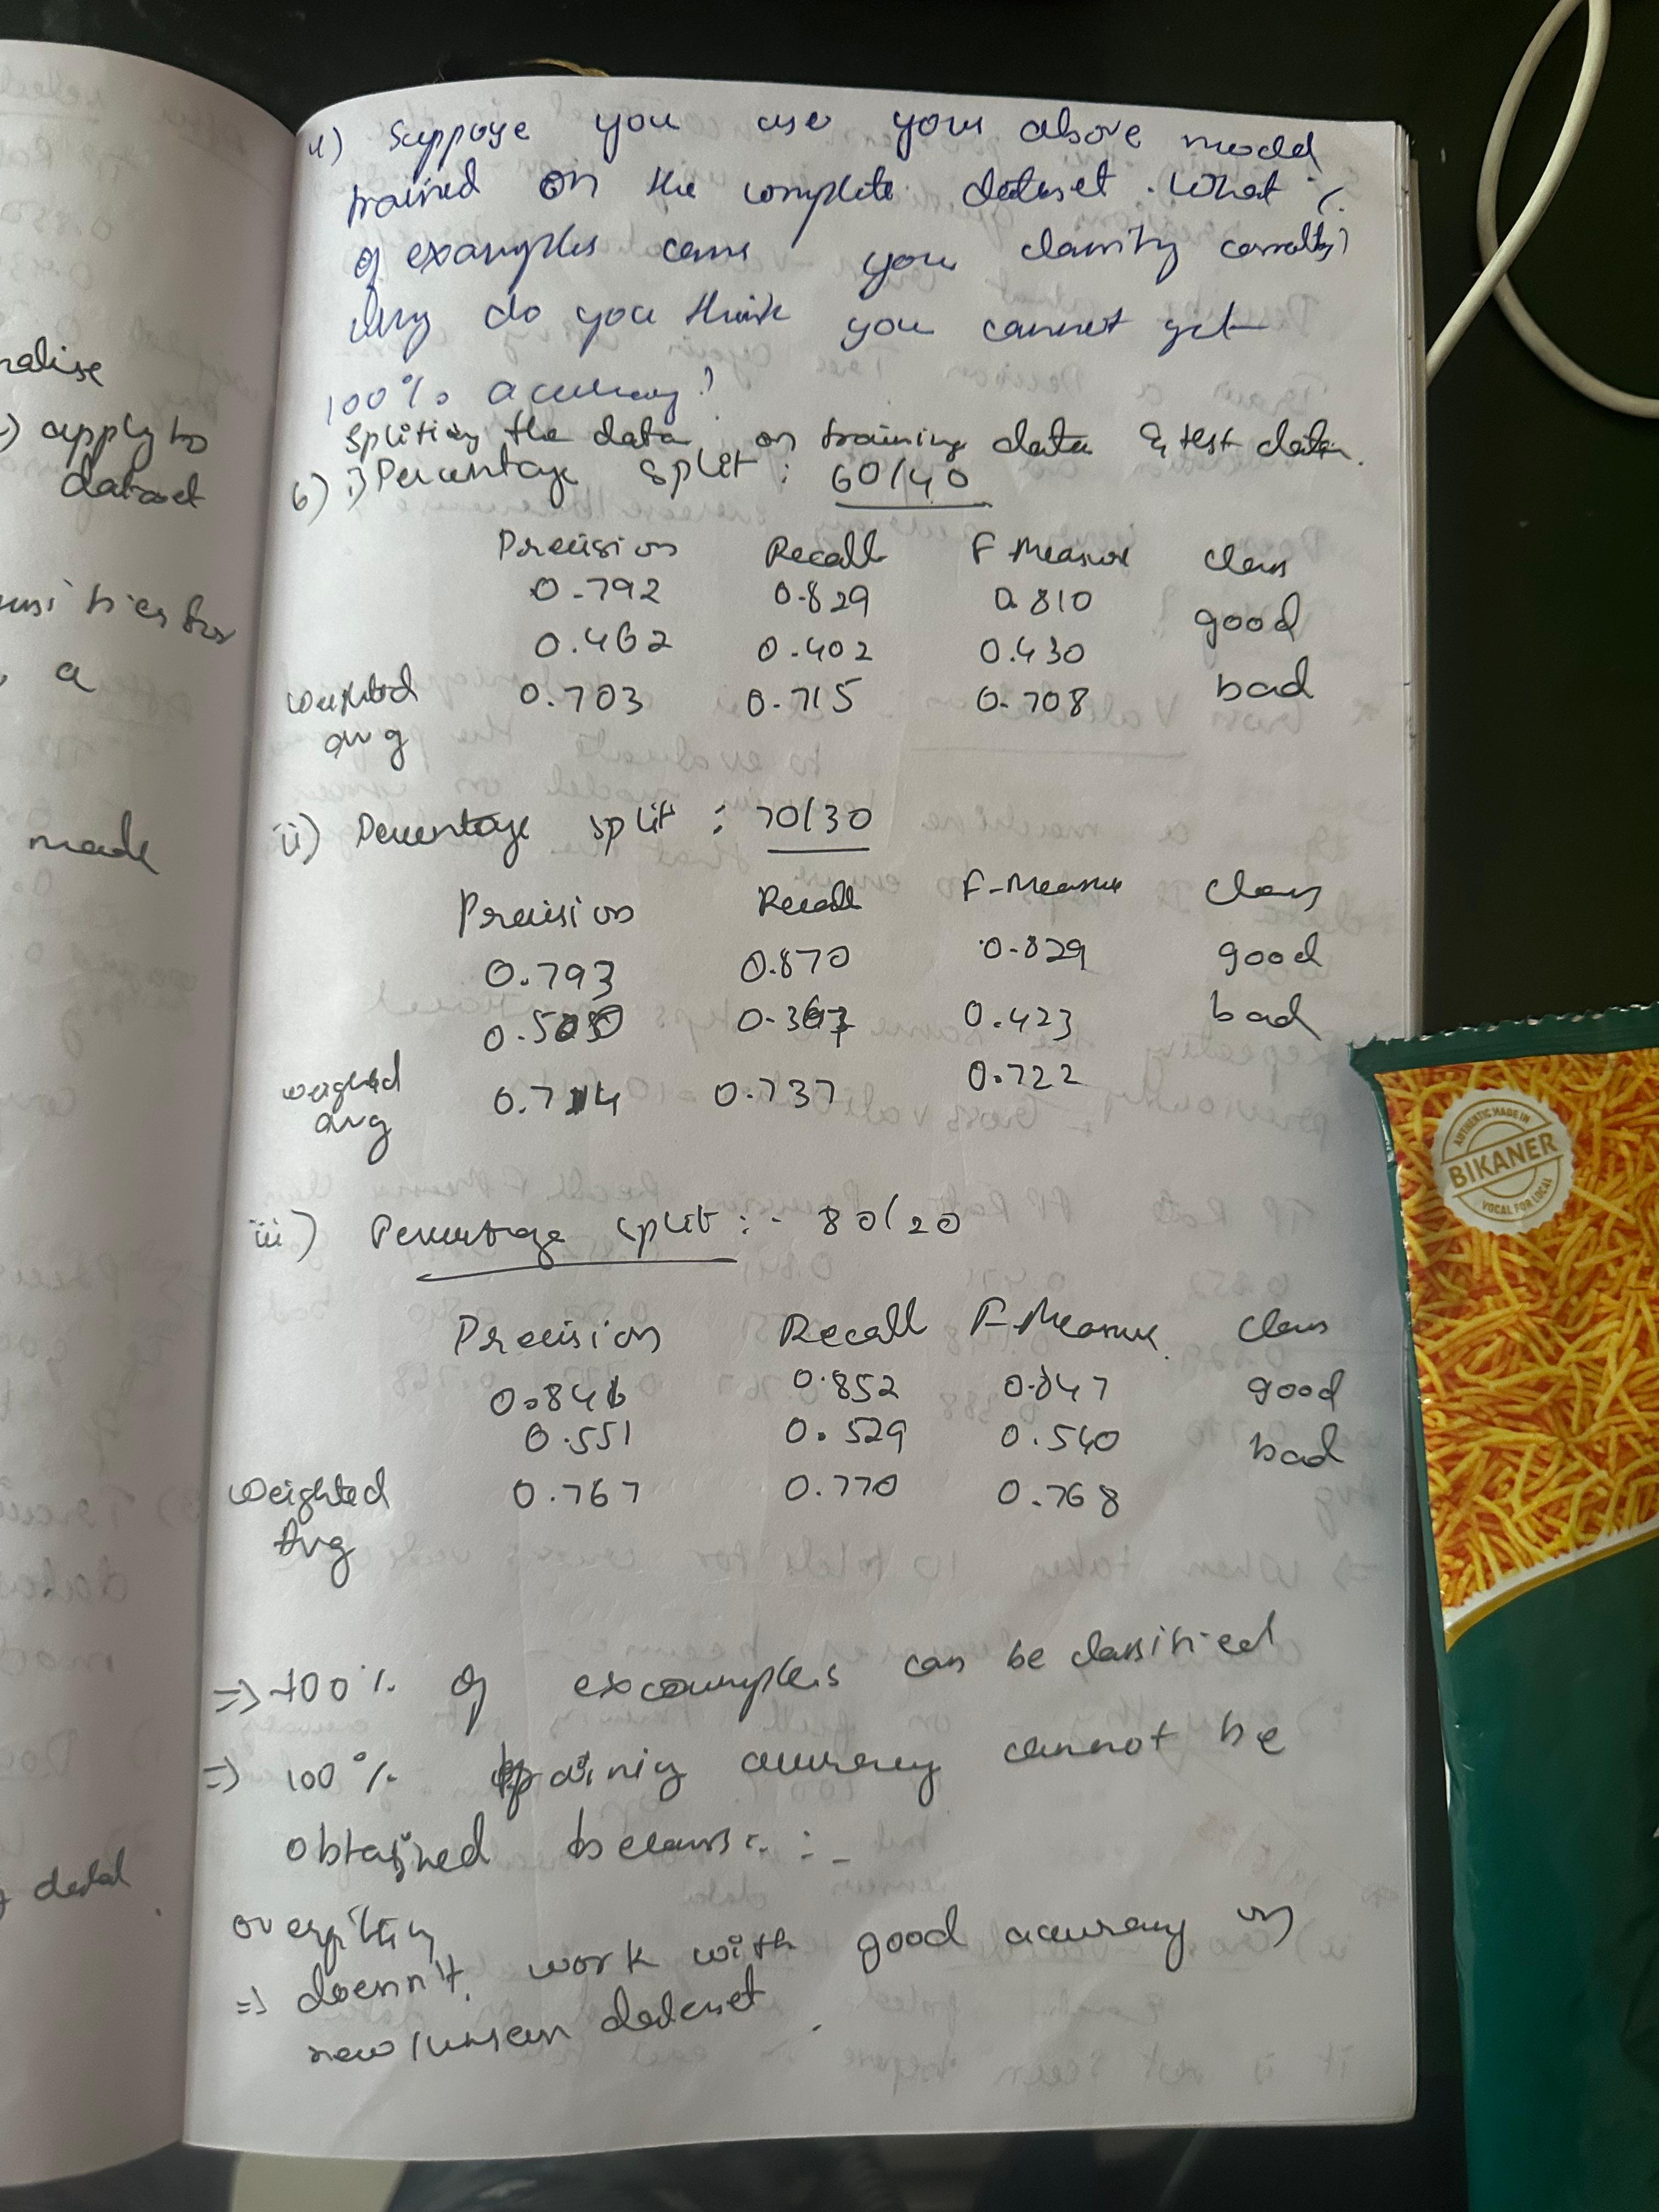 nalise
apply to
dataset
a
made
4) Suppose you use your above model
trained on the complete dataset. What %
of examples can you classify correctly?
Why do you think you cannot get
100% accuracy?
Spliting the data on training data & test data.
6) i) Percentage split : 60/40
Precision Recall F Measure class
0.792 0.829 0.810 good
0.462 0.402 0.430 bad
weighted avg 0.703 0.715 0.708
ii) Percentage split : 70/30
Precision Recall F-Measure Class
0.793 0.870 0.829 good
0.367 0.423 bad
weighted avg 0.714 0.737 0.722
iii) Percentage split :- 80/20
Precision Recall F-Measure Class
0.846 0.852 0.847 good
0.551 0.529 0.540 bad
Weighted Avg 0.767 0.770 0.768
=> 100% of examples can be classified
=> 100% accuracy cannot be
obtained because :-
overfitting
=> doesn't work with good accuracy in
new/unseen dataset.
AUTHENTIC MADE IN
BIKANER
VOCAL FOR LOCAL